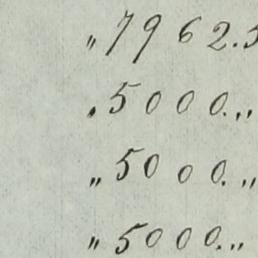 „ 7962.5
„ 5000.„
„ 5000.„
„ 5000.„